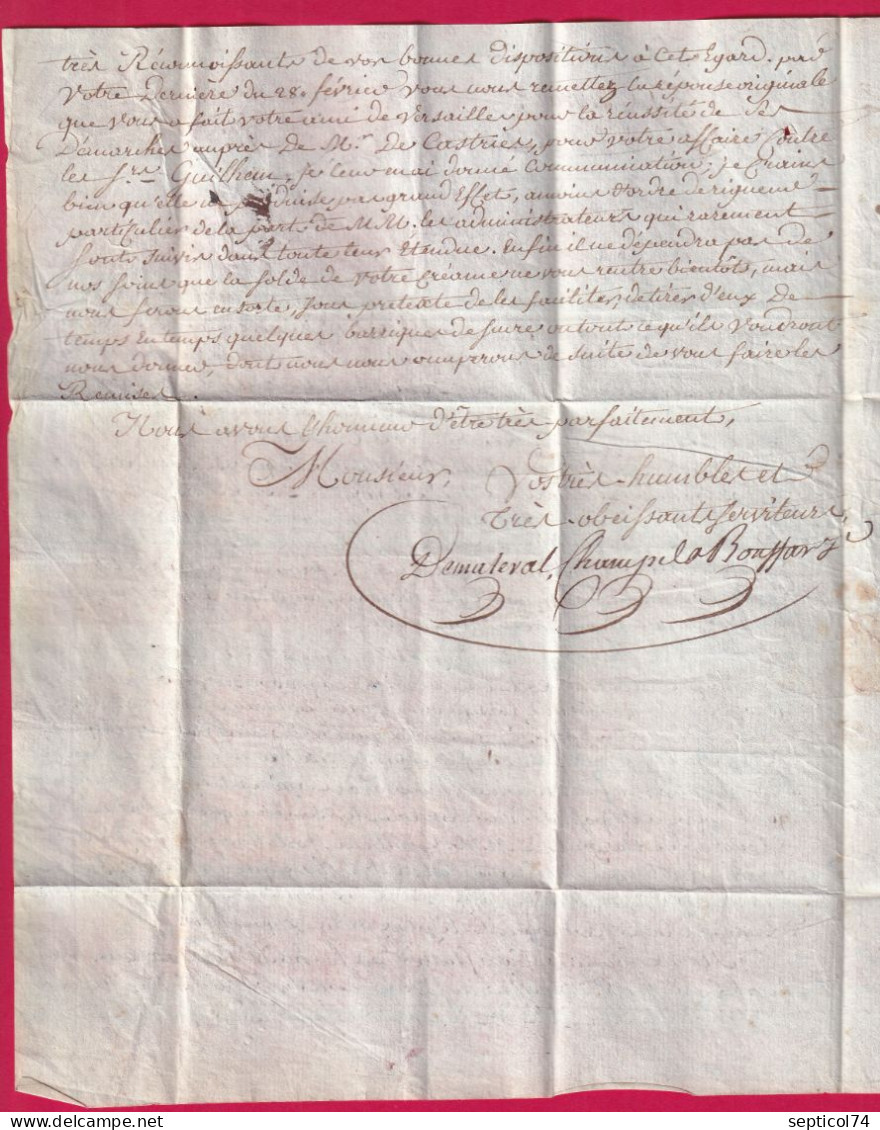 très Réconnoissants de vos bonnes dispositions à cet Egard. par
Votre Derniere du 28. février Vous nous remettez la réponse originale
que Vous a fait votre ami de Versailles pour la réussité de ses
Démarches auprès de Mr. De Castries, pour votre affaire Contre
les Srs. Guilhem. Je leur en ai donné Communication; je Crains
bien qu'elle ne produise pas grand Effet, amoins d'ordre de rigueur
particulier de la part de MM. les administrateurs qui rarement
sonts suivis dans toute leur Etendue. Enfin il ne dépendra pas de
nos soins que la solde de Votre Créance ne vous rentre bientôts, mais
nous ferons ensorte, sous pretexte de les faciliter, de tirer d'eux De
temps en temps quelques barriques de sucre ou tout ce qu'ils Voudront
nous donner, dont nous nous occuperons de suite de vous faire les
Remises.
Nous avons l'honneur d'être très parfaitement,
Monsieur,
Vos très-humbles et
très-obeissants serviteurs,
Demaleval, Champ
septicol74
DELCAMPE.NET